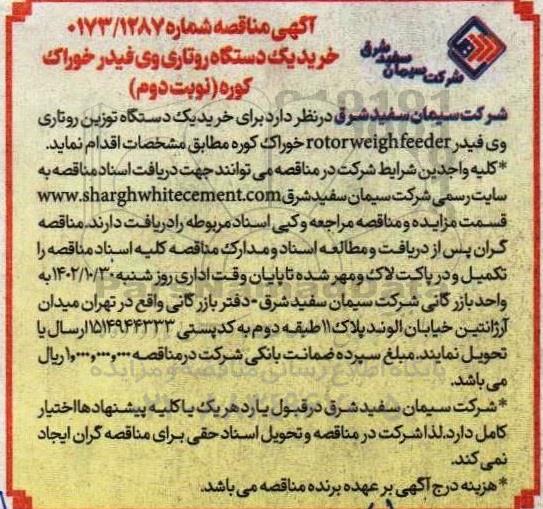 آگهی مناقصه شماره ۰۱۷۳/۱۲۸۷
خرید یک دستگاه روتاری وی فیدر خوراک
کوره (نوبت دوم)
شرکت سیمان سفید شرق
شرکت سیمان سفید شرق درنظر دارد برای خرید یک دستگاه توزین روتاری
وی فیدر rotorweighfeeder خوراک کوره مطابق مشخصات اقدام نماید.
*کلیه واجدین شرایط شرکت در مناقصه می توانند جهت دریافت اسناد مناقصه به
سایت رسمی شرکت سیمان سفید شرق www.sharghwhitecement.com
قسمت مزایده و مناقصه مراجعه و کپی اسناد مربوطه را دریافت دارند. مناقصه
گران پس از دریافت و مطالعه اسناد و مدارک مناقصه کلیه اسناد مناقصه را
تکمیل و در پاکت لاک و مهر شده تا پایان وقت اداری روز شنبه ۱۴۰۲/۱۰/۳۰ به
واحد بازرگانی شرکت سیمان سفید شرق - دفتر بازرگانی واقع در تهران میدان
آرژانتین خیابان الوند پلاک ۱۱ طبقه دوم به کدپستی ۱۵۱۴۹۴۴۳۳۳ ارسال یا
تحویل نمایند. مبلغ سپرده ضمانت بانکی شرکت در مناقصه ۱,۰۰۰,۰۰۰,۰۰۰ ریال
می باشد.
*شرکت سیمان سفید شرق در قبول یا رد هر یک یا کلیه پیشنهادها اختیار
کامل دارد. لذا شرکت در مناقصه و تحویل اسناد حقی برای مناقصه گران ایجاد
نمی کند.
*هزینه درج آگهی بر عهده برنده مناقصه می باشد.
پایگاه اطلاع رسانی مناقصه و مزایده